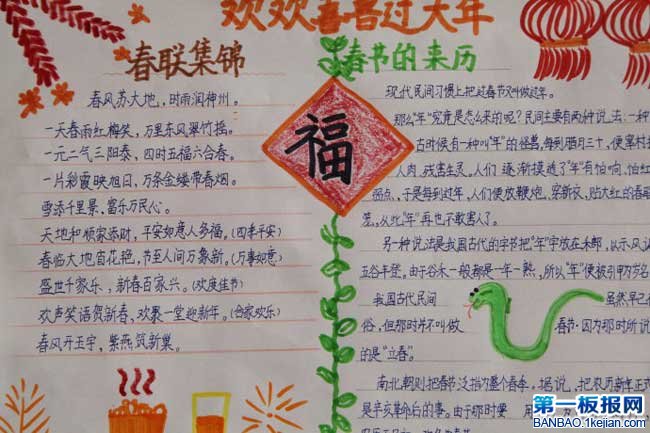 欢欢喜喜过大年
春联集锦
春风苏大地，时雨润神州。
一天春雨红梅笑，万里东风翠竹摇。
一元二气三阳泰，四时五福六合春。
一片彩霞映旭日，万条金缕带春烟。
雪添千里景，富乐万民心。
天地和顺家添财，平安如意人多福。(四季平安)
春临大地百花艳，节至人间万象新。(万事如意)
盛世千家乐，新春百家兴。(欢度佳节)
欢声笑语贺新春，欢聚一堂迎新年。(合家欢乐)
春风开玉宇，紫燕贺新巢。
福
春节的来历
现代民间习惯上把过春节又叫做过年。
那么"年"究竟是怎么来的呢？民间主要有两种说法：一种
古时候有一种叫"年"的怪兽，每到腊月三十，便窜村
人肉，残害生灵。人们逐渐摸透了"年"有怕响，怕红
弱点，于是每到过年，人们便放鞭炮，穿新衣，贴大红的春联
笼，从此"年"再也不敢害人了。
另一种说法是我国古代的字书把"年"字放在禾部，以示风
五谷丰登。由于谷禾一般都是一年一熟，所以"年"便被引申为岁名
我国古代民间 虽然早已
俗，但那时并不叫做 春节，因为那时所说
的是"立春"。
南北朝则把春节泛指为整个春季。据说，把农历新年正式
是辛亥革命后的事。由于那时要 用
第一板报网
BANBAO.1kejian.com